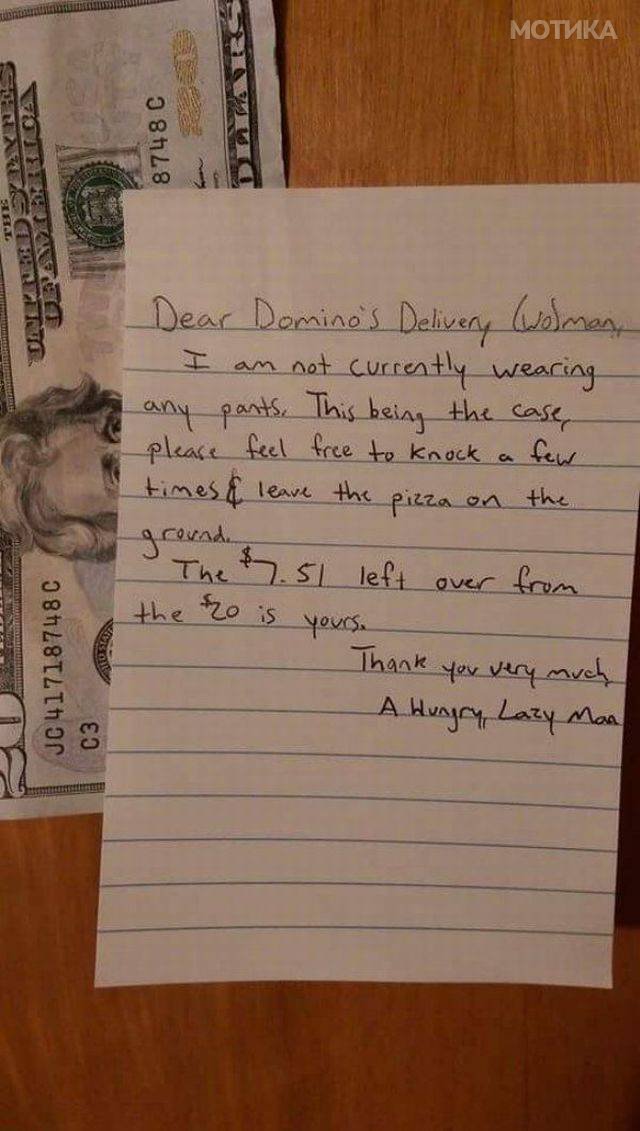 МОТИКА
THE
UNITED STATES
OF AMERICA
8748 C
Dear Domino's Delivery (Wo)man,
I am not currently wearing
any pants. This being the case,
please feel free to knock a few
times & leave the pizza on the
ground.
The $7.51 left over from
the $20 is yours.
Thank you very much,
A Hungry, Lazy Man
JC41718748C
C3
20